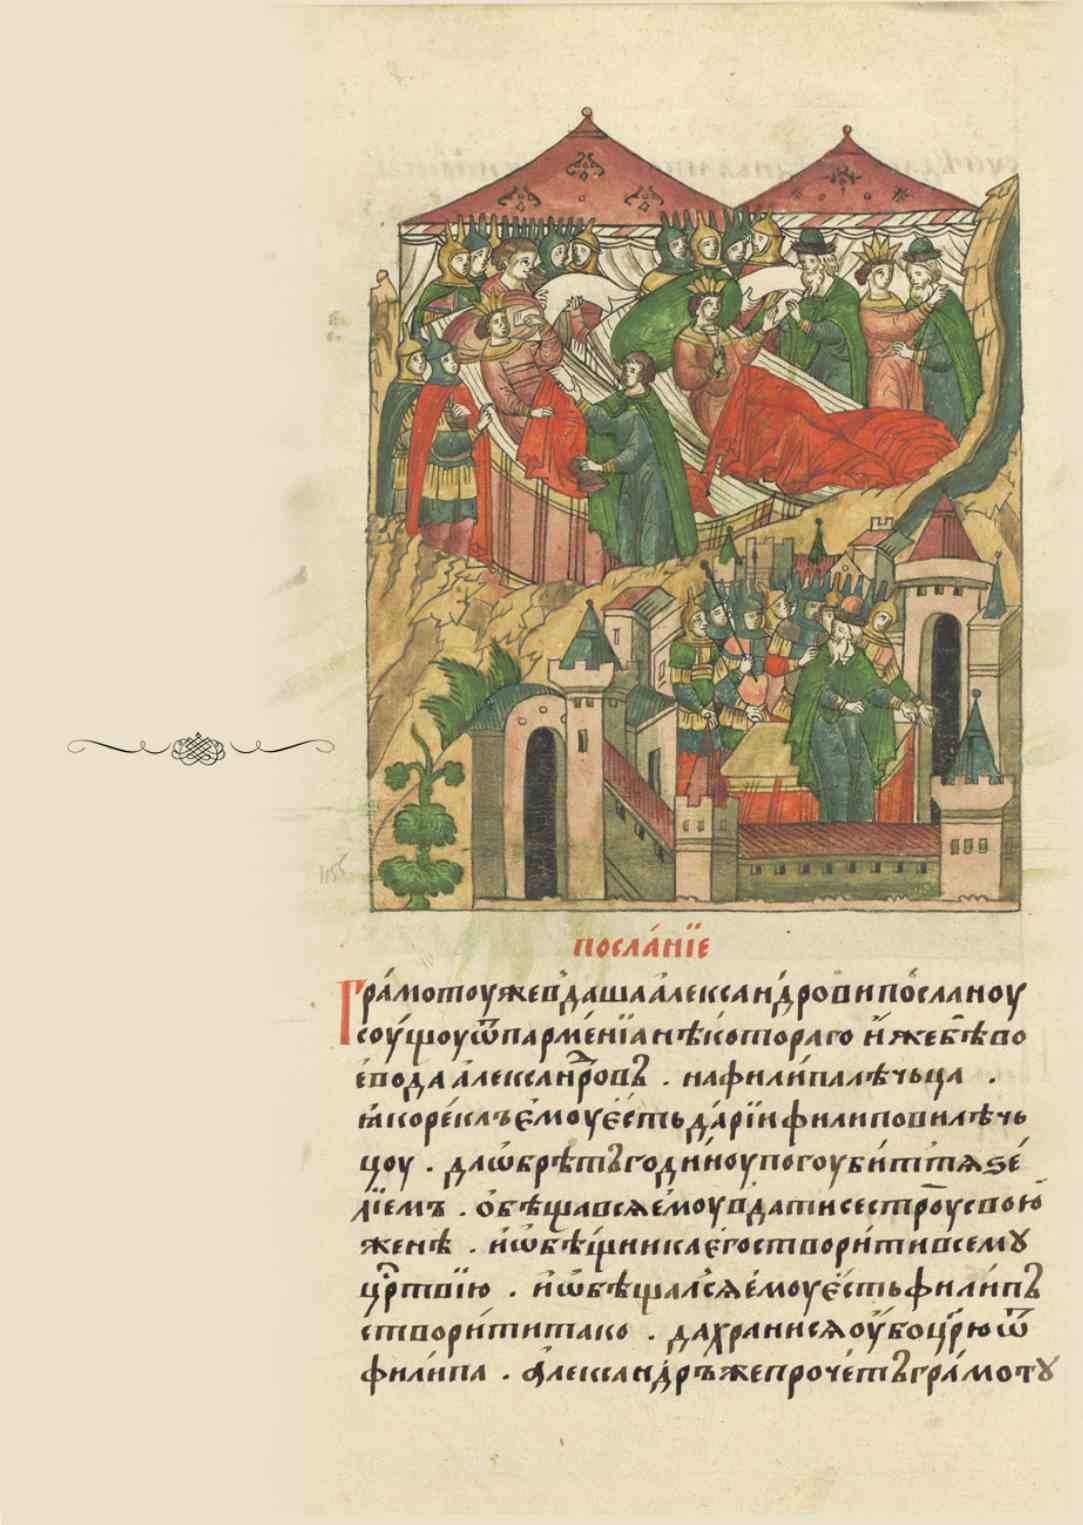 посла́нїе
Гра́мотоу же вда́ша а́леѯандрови по́сланоу
соу́щоу ѿ парме́нїа нѣ́котораго и́же бѣ во
евода а́леѯа́ндров . на фили́па лѣчьца .
ꙗ́коре́клъ є҆моу є҆́сть да́рїи филипови лѣчь
цоу . да ѡ҆брѣтъ годи́ноу погоуби́т тѧ ѕе́
лїемъ . о҆бѣща́всѧ е҆моу вда́ти сестроу свою
женѣ . и҆ ѡ҆бѣ́щника є҆го створи́ти всемꙋ
црⷭ҇твїю . и҆ ѡ҆бѣща́лсѧ е҆моу є҆́сть фили́пъ
створи́ти тако . да храни́сѧ оу҆́бо цр҃ю ѿ
фили́па . а҆леѯандръ же проче́тъ гра́мотꙋ